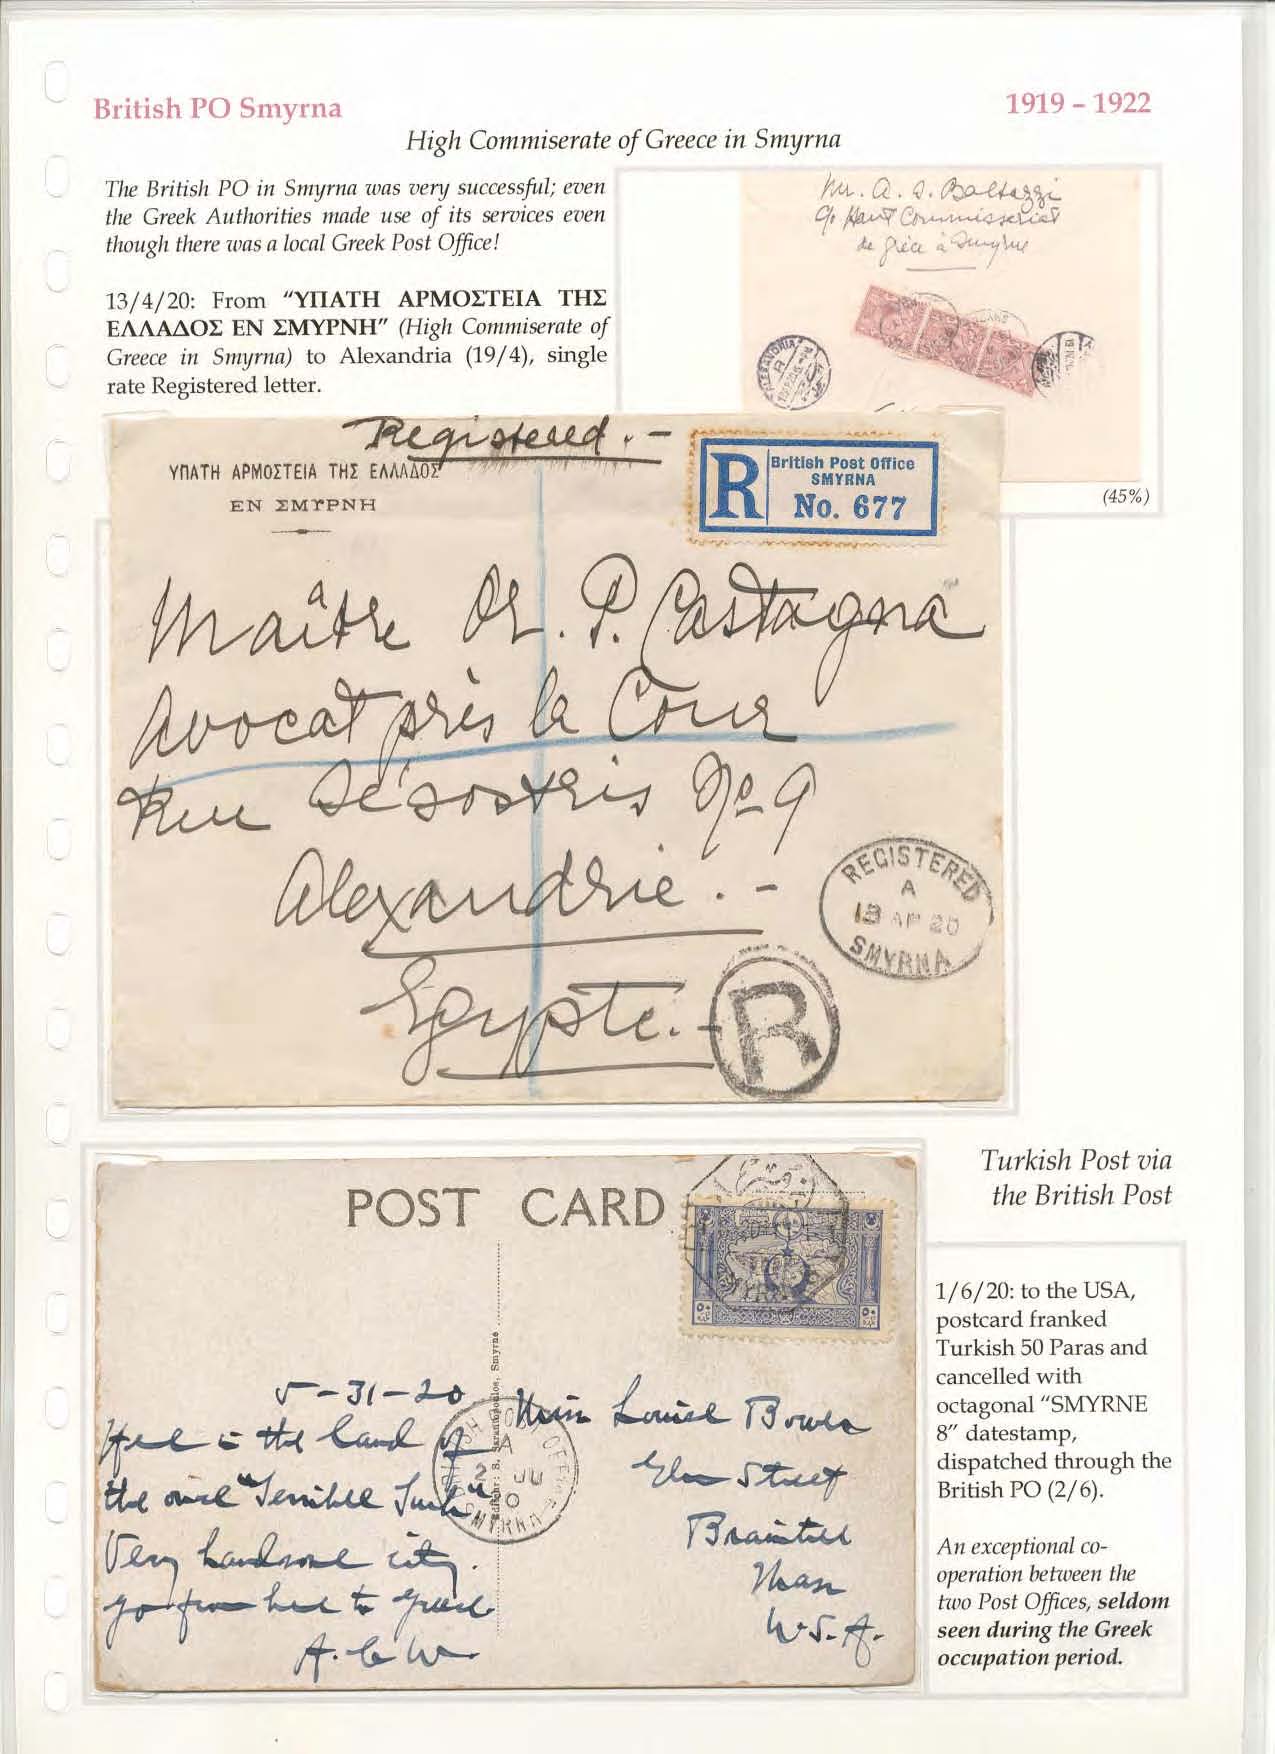 British PO Smyrna
1919 – 1922
High Commiserate of Greece in Smyrna
The British PO in Smyrna was very successful; even
the Greek Authorities made use of its services even
though there was a local Greek Post Office!
13/4/20: From "ΥΠΑΤΗ ΑΡΜΟΣΤΕΙΑ ΤΗΣ
ΕΛΛΑΔΟΣ ΕΝ ΣΜΥΡΝΗ" (High Commiserate of
Greece in Smyrna) to Alexandria (19/4), single
rate Registered letter.
Mr. A. S. Baltazzi
c/o Haut Commisseriat
de Grèce à Smyrne
ALEXANDRIA
R
(45%)
Registered. –
ΥΠΑΤΗ ΑΡΜΟΣΤΕΙΑ ΤΗΣ ΕΛΛΑΔΟΣ
ΕΝ ΣΜΥΡΝΗ
R
British Post Office
SMYRNA
No. 677
Maître Or. P. Castagna
Avocat près la Cour
Rue Sésostris No 9
Alexandrie. –
Egypte. –
REGISTERED
A
13 AP 20
SMYRNA
R
POST CARD
SMYRNE
Editeur: S. Sarantopoulos, Smyrne
5-31-20
Here is the land of
the once "Terrible Turk"
Very handsome city.
go from here to Greece
A. C. W.
BRITISH POST OFFICE
A
2 JU
0
SMYRNA
Miss Louise Bowen
Elm Street
Braintree
Mass
U.S.A.
Turkish Post via
the British Post
1/6/20: to the USA,
postcard franked
Turkish 50 Paras and
cancelled with
octagonal "SMYRNE
8" datestamp,
dispatched through the
British PO (2/6).
An exceptional co-
operation between the
two Post Offices, seldom
seen during the Greek
occupation period.